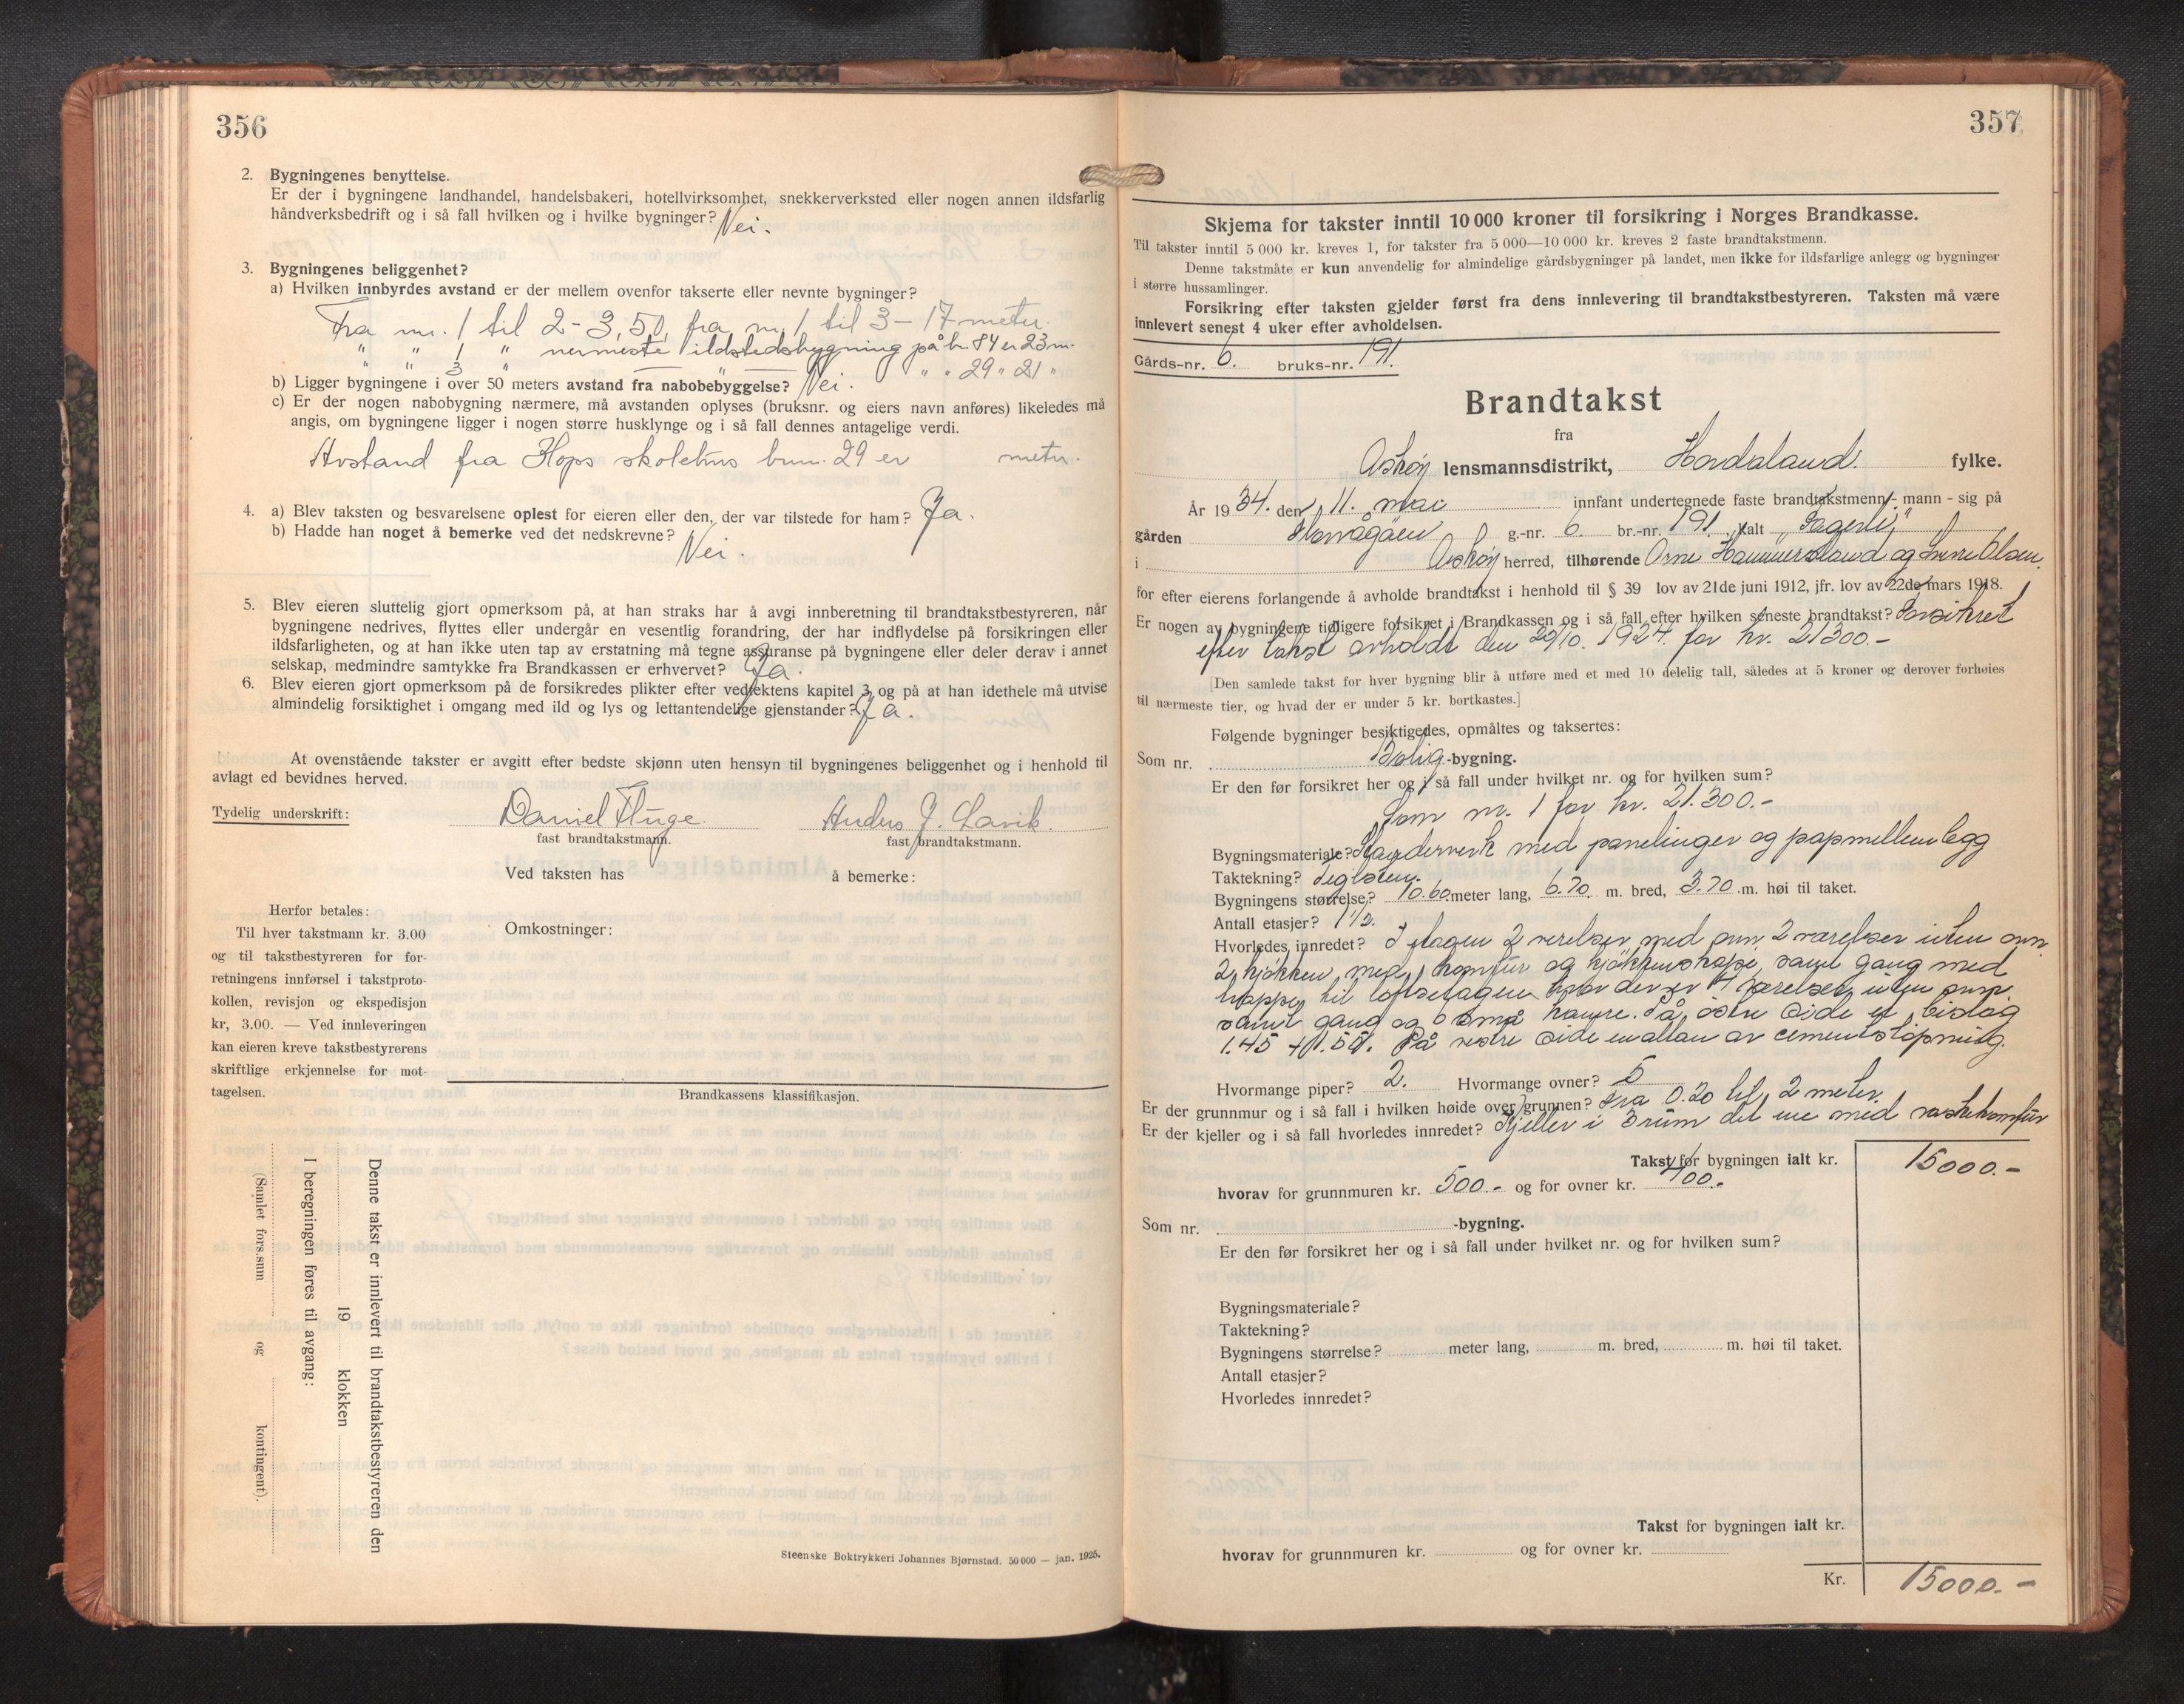 356
2. Bygningenes benyttelse.
Er der i bygningene landhandel, handelsbakeri, hotellvirksomhet, snekkerverksted eller nogen annen ildsfarlig
håndverksbedrift og i så fall hvilken og i hvilke bygninger? Nei.
3. Bygningenes beliggenhet?
a) Hvilken innbyrdes avstand er der mellem ovenfor takserte eller nevnte bygninger?
Fra nr. 1 til 2 - 3,50, fra nr. 1 til 3 - 17 meter.
" " 1 " nermeste ildstedsbygning på br. 84 er 23 m.
" " 3 " " " " 29 " 21 "
b) Ligger bygningene i over 50 meters avstand fra nabobebyggelse? Nei.
c) Er der nogen nabobygning nærmere, må avstanden oplyses (bruksnr. og eiers navn anføres) likeledes må
angis, om bygningene ligger i nogen større husklynge og i så fall dennes antagelige verdi.
Avstand fra Hops skolehus brnr. 29 er meter.
4. a) Blev taksten og besvarelsene oplest for eieren eller den, der var tilstede for ham? Ja.
b) Hadde han noget å bemerke ved det nedskrevne? Nei.
5. Blev eieren sluttelig gjort opmerksom på, at han straks har å avgi innberetning til brandtakstbestyreren, når
bygningene nedrives, flyttes eller undergår en vesentlig forandring, der har indflydelse på forsikringen eller
ildsfarligheten, og at han ikke uten tap av erstatning må tegne assuranse på bygningene eller deler derav i annet
selskap, medmindre samtykke fra Brandkassen er erhvervet? Ja.
6. Blev eieren gjort opmerksom på de forsikredes plikter efter vedtektens kapitel 3 og på at han idethele må utvise
almindelig forsiktighet i omgang med ild og lys og lettantendelige gjenstander? Ja.
At ovenstående takster er avgitt efter bedste skjønn uten hensyn til bygningenes beliggenhet og i henhold til
avlagt ed bevidnes herved.
Tydelig underskrift: Daniel Fluge. Anders J. Lavik.
fast brandtakstmann. fast brandtakstmann.
Ved taksten has å bemerke:
Herfor betales:
Til hver takstmann kr. 3.00
og til takstbestyreren for for-
retningens innførsel i takstproto-
kollen, revisjon og ekspedisjon
kr, 3.00. — Ved innleveringen
kan eieren kreve takstbestyrerens
skriftlige erkjennelse for mot-
tagelsen.
Omkostninger:
Brandkassens klassifikasjon.
Denne takst er innlevert til brandtakstbestyreren den
19 klokken
I beregningen føres til avgang:
(Samlet fors.sum og kontingent).
Steenske Boktrykkeri Johannes Bjørnstad. 50 000 — jan. 1925.
357
Skjema for takster inntil 10 000 kroner til forsikring i Norges Brandkasse.
Til takster inntil 5 000 kr. kreves 1, for takster fra 5 000—10 000 kr. kreves 2 faste brandtakstmenn.
Denne takstmåte er kun anvendelig for almindelige gårdsbygninger på landet, men ikke for ildsfarlige anlegg og bygninger
i større hussamlinger.
Forsikring efter taksten gjelder først fra dens innlevering til brandtakstbestyreren. Taksten må være
innlevert senest 4 uker efter avholdelsen.
Gårds-nr. 6. bruks-nr. 191.
Brandtakst
fra
Askøy lensmannsdistrikt, Hordaland. fylke.
År 1934. den 11. mai innfant undertegnede faste brandtakstmenn - mann - sig på
gården g.-nr. 6. br.-nr. 191. kalt "Fagerli"
i Askøy herred, tilhørende Arne Hammersland og Olsen.
for efter eierens forlangende å avholde brandtakst i henhold til § 39 lov av 21de juni 1912, jfr. lov av 22de mars 1918.
Er nogen av bygningene tidligere forsikret i Brandkassen og i så fall efter hvilken seneste brandtakst? Forsikret
efter takst avholdt den 29/10. 1924. for kr. 21300.-
[Den samlede takst for hver bygning blir å utføre med et med 10 delelig tall, således at 5 kroner og derover forhøies
til nærmeste tier, og hvad der er under 5 kr. bortkastes.]
Følgende bygninger besiktigedes, opmåltes og taksertes:
Som nr. Bolig-bygning.
Er den før forsikret her og i så fall under hvilket nr. og for hvilken sum?
Som nr. 1 for kr. 21.300.-
Bygningsmateriale? Stagderverk med panelinger og papmellemlegg
Taktekning? Teglsten.
Bygningens størrelse? 10.60 meter lang, 6.70 m. bred, 3.70 m. høi til taket.
Antall etasjer? 1 1/2.
Hvorledes innredet? I etagen 2 verelser med ovn, 2 værelser uten ovn
2 kjøkken med komfur og kjøkkenskape, samt gang med
trapper til loftsetagen hvor der er 4 værelser uten ovn
samt gang og 6 små kamre. På østre side et bislag
1.45 + 1.50. På vestre side en altan av cementstøpning.
Hvormange piper? 2. Hvormange ovner? 5
Er der grunnmur og i så fall i hvilken høide over grunnen? Fra 0.20 til 2 meter.
Er der kjeller og i så fall hvorledes innredet? Kjeller i 3 rum det ene med vaskekomfur
Takst for bygningen ialt kr. 15000.-
hvorav for grunnmuren kr. 500.- og for ovner kr. 400.-
Som nr. -bygning.
Er den før forsikret her og i så fall under hvilket nr. og for hvilken sum?
Bygningsmateriale?
Taktekning?
Bygningens størrelse? meter lang, m. bred, m. høi til taket.
Antall etasjer?
Hvorledes innredet?
Takst for bygningen ialt kr.
hvorav for grunnmuren kr. og for ovner kr.
Kr. 15000.-